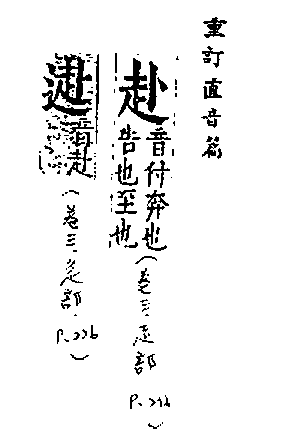 重訂直音篇
赴
音付奔也
告也至也
(卷三.走部
音赴
(卷三.辵部.
P.226)